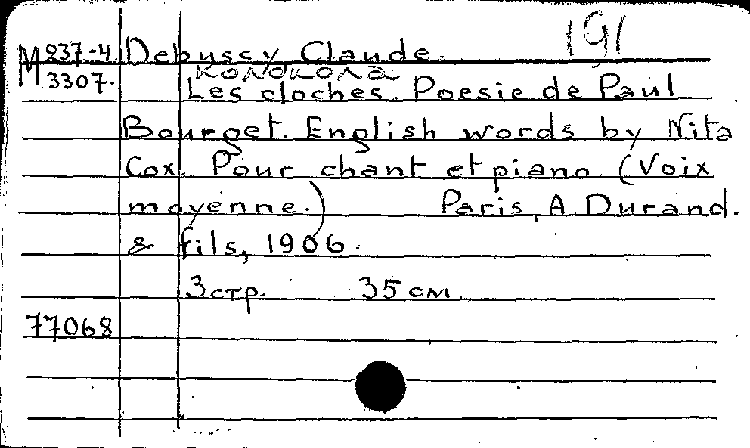 191
M 237-4 Debussy Claude.
колокола
3307. Les cloches. Poesie de Paul
Bourget. English words by Nita
Cox. Pour chant et piano (Voix
moyenne.) Paris, A. Durand.
& fils, 1906.
3 стр. 35 см.
77068